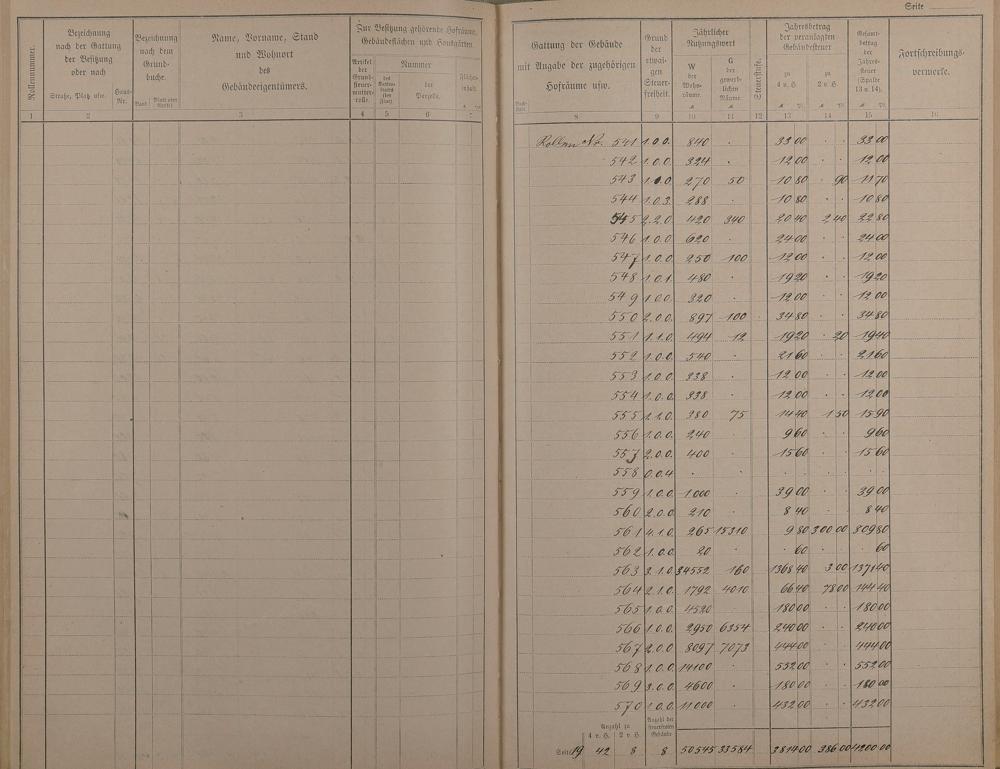 Seite
Rollennummer.
Bezeichnung
nach der Gattung
der Besitzung
oder nach
Straße, Platz usw.
Haus-
Nr.
Bezeichnung
nach dem
Grund-
buche.
Band
Name, Vorname, Stand
und Wohnort
des
Gebäudeeigentümers.
Zur Besitzung gehörende Hofräume,
Gebäudeflächen und Hausgärten
Artikel
der
Grund-
steuer-
mutter-
rolle.
Nummer
des
Karten-
blatts
der
Parzelle.
Flächen-
inhalt.
Gattung der Gebäude
mit Angabe der zugehörigen
Hofräume usw.
Grund
der
etwai-
gen
Steuer-
freiheit.
Jährlicher
Nutzungswert
W
der
Wohn-
räume.
G
der
gewerb-
lichen
Räume.
Steuerstufe.
Jahresbetrag
der veranlagten
Gebäudesteuer
zu
4 v. H.
zu
2 v. H.
Gesamt-
betrag
der
Jahres-
steuer
(Spalte
13 u. 14).
Fortschreibungs-
vermerke.
1 2 3 4 5 6 7 8 9 10 11 12 13 14 15 16
Rollen No. 541 1.0.0. 840 . 33 00 . . 33 00
542 1.0.0. 324 . 12 00 . . 12 00
543 1.0.0 270 50 10 80 . 90 11 70
544 1.0.3. 288 . 10 80 . . 10 80
545 2.2.0. 420 340 20 40 2 40 22 80
546 1.0.0. 620 . 24 00 . . 24 00
547 1.0.0. 250 100 12 00 . . 12 00
548 1.0.1. 480 . 19 20 . . 19 20
549 1.0.0. 320 . 12 00 . . 12 00
550 2.0.0. 897 100 34 80 . . 34 80
551 1.1.0. 494 12 19 20 . 20 19 40
552 1.0.0. 540 . 21 60 . . 21 60
553 1.0.0. 338 . 12 00 . . 12 00
554 1.0.0. 338 . 12 00 . . 12 00
555 1.1.0. 380 75 14 40 1 50 15 90
556 1.0.0. 240 . 9 60 . . 9 60
557 2.0.0. 400 . 15 60 . . 15 60
558 0.0.4. . . . . . . . .
559 1.0.0. 1000 . 39 00 . . 39 00
560 2.0.0. 210 . 8 40 . . 8 40
561 4.1.0. 265 15310 9 80 300 00 309 80
562 1.0.0. 20 . . 60 . . . 60
563 3.1.0. 34552 160 1368 40 3 00 1371 40
564 2.1.0. 1792 4010 66 40 78 00 144 40
565 1.0.0. 4520 . 180 00 . . 180 00
566 1.0.0. 2950 6354 240 00 . . 240 00
567 2.0.0 8097 7073 444 00 . . 444 00
568 1.0.0. 14100 . 552 00 . . 552 00
569 3.0.0. 4600 . 180 00 . . 180 00
570 1.0.0. 11000 . 432 00 . . 432 00
Anzahl zu
4 v. H. 2 v. H.
Anzahl der
steuerfreien
Gebäude
Seite 19 42 8 8 50545 33584 3814 00 386 00 4200 00